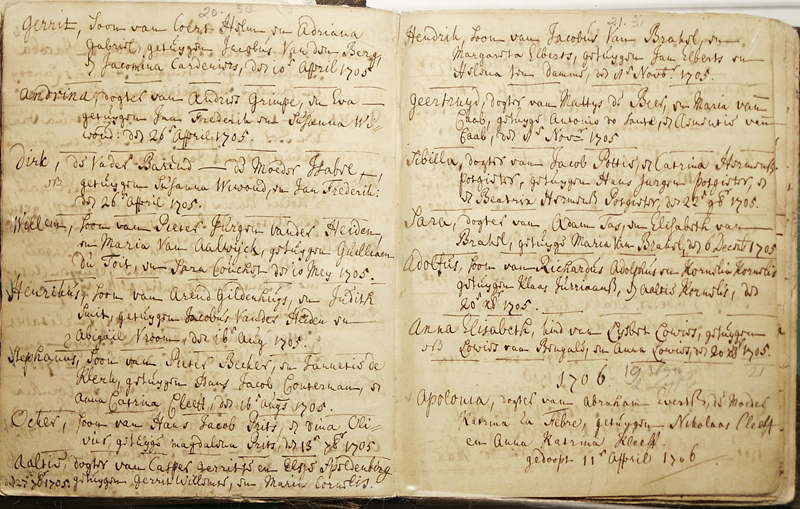 20. 30
Gerrit, soon van Coert Helm en Adriana
Gabriel, getuygen Jacobus Van den Berg,
& Jacomina Cardeniers, den 10e April 1705
Andrina, dogter van Andries Grimpe, en Eva —
getuygen Jan Frederik en Susanna We-
woud: den 26e April 1705.
Dirk, de Vader Barend — de Moeder Isabel —,
getuygen Susanna Wewoud, en Jan Frederik:
den 26e April 1705.
Willem, soon van Pieter Jurgen vander Heiden,
en Maria Van Aalwijck, getuygen Guilliam
du Toit, en Sara Couchet den 10 Mey 1705.
Henrikus, soon van Arend Gildenhuys, en Judith
Smit, getuygen Jacobus Vander Heiden en
Abigail Vroom, den 16e Aug 1705.
Stephanus, soon van Pieter Becker, en Jannetie de
Klerk, getuygen Hans Jacob Conterman, en
Anna Catrina Cleeff, den 16e Augs 1705.
Ocker, soon van Hans Jacob Brits, en Dina Oli-
vier, getuyge magdalena Brits, den 13e 7br 1705
Aaltie, dogter van Casper gerritse en Elsje Spoldenberg
den 27e 7br 1705. getuygen Gerrit Willemse, en Maria Cornelis.
21. 31
Hendrik, soon van Jacobus Van Brakel, en
Margareta Elberts, getuygen Jan Elberts en
Helena ten damme, den 1e Novbr 1705.
Geertruyd, dogter van Mattys de Beer, en Maria van
Caab, getuygs Antonio en Asuentie van
Caab, den Novbr 1705
Sibilla, dogter van Jacob Pottie, en Catrina Hermensz
Potgieter, getuygen Hans Jurgen Potgieter, en
Beatrix Hermensz Potgieter, den 22e 9br 1705.
Sara, dogter van Adam Tas, en Elisabeth van —
Brakel, getuyge Maria Van Brakel, den 6 Decembr 1705
Adolfus, soon van Richardus Adolphus en Kornelia Kornelis
getuygen Klaas Jurriaansz, & Aaltie Kornelis, den
20e Xbr 1705.
Anna Elisabeth, kind van Lysbet Lowies, getuygen
Lowies van Bengale, en Anna Lowies, den 20 Xbr 1705.
1706
Apolonia, dogter van Abraham Evertsz, de Moeder
Katrina La Febre, getuygen Nikolaas Cleeff
en Anna Katrina Kleeff
gedoopt 11e April 1706